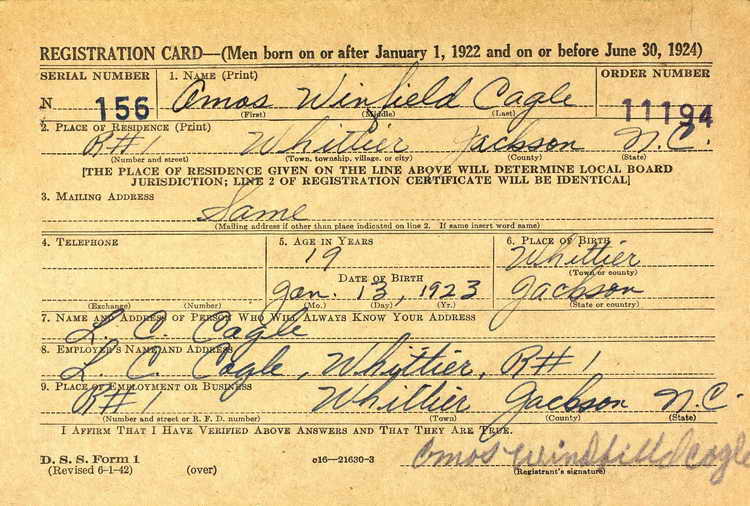 REGISTRATION CARD—(Men born on or after January 1, 1922 and on or before June 30, 1924)
SERIAL NUMBER 1. NAME (Print) ORDER NUMBER
N 156 Amos Winfield Cagle 11194
(First) (Middle) (Last)
2. PLACE OF RESIDENCE (Print)
R#1 Whittier Jackson N.C.
(Number and street) (Town, township, village, or city) (County) (State)
[THE PLACE OF RESIDENCE GIVEN ON THE LINE ABOVE WILL DETERMINE LOCAL BOARD
JURISDICTION; LINE 2 OF REGISTRATION CERTIFICATE WILL BE IDENTICAL]
3. MAILING ADDRESS
Same
(Mailing address if other than place indicated on line 2. If same insert word same)
4. TELEPHONE 5. AGE IN YEARS 6. PLACE OF BIRTH
19 Whittier
(Town or county)
DATE OF BIRTH
Jan. 13, 1923 Jackson
(Exchange) (Number) (Mo.) (Day) (Yr.) (State or county)
7. NAME AND ADDRESS OF PERSON WHO WILL ALWAYS KNOW YOUR ADDRESS
L. C. Cagle
8. EMPLOYER'S NAME AND ADDRESS
L. C. Cagle, Whittier, R#1
9. PLACE OF EMPLOYMENT OR BUSINESS
R#1 Whittier Jackson N.C.
(Number and street or R. F. D. number) (Town) (County) (State)
I AFFIRM THAT I HAVE VERIFIED ABOVE ANSWERS AND THAT THEY ARE TRUE.
D. S. S. Form 1
(Revised 6-1-42) (over) c16—21630-3
Amos Windfilld cagle
(Registrant's signature)